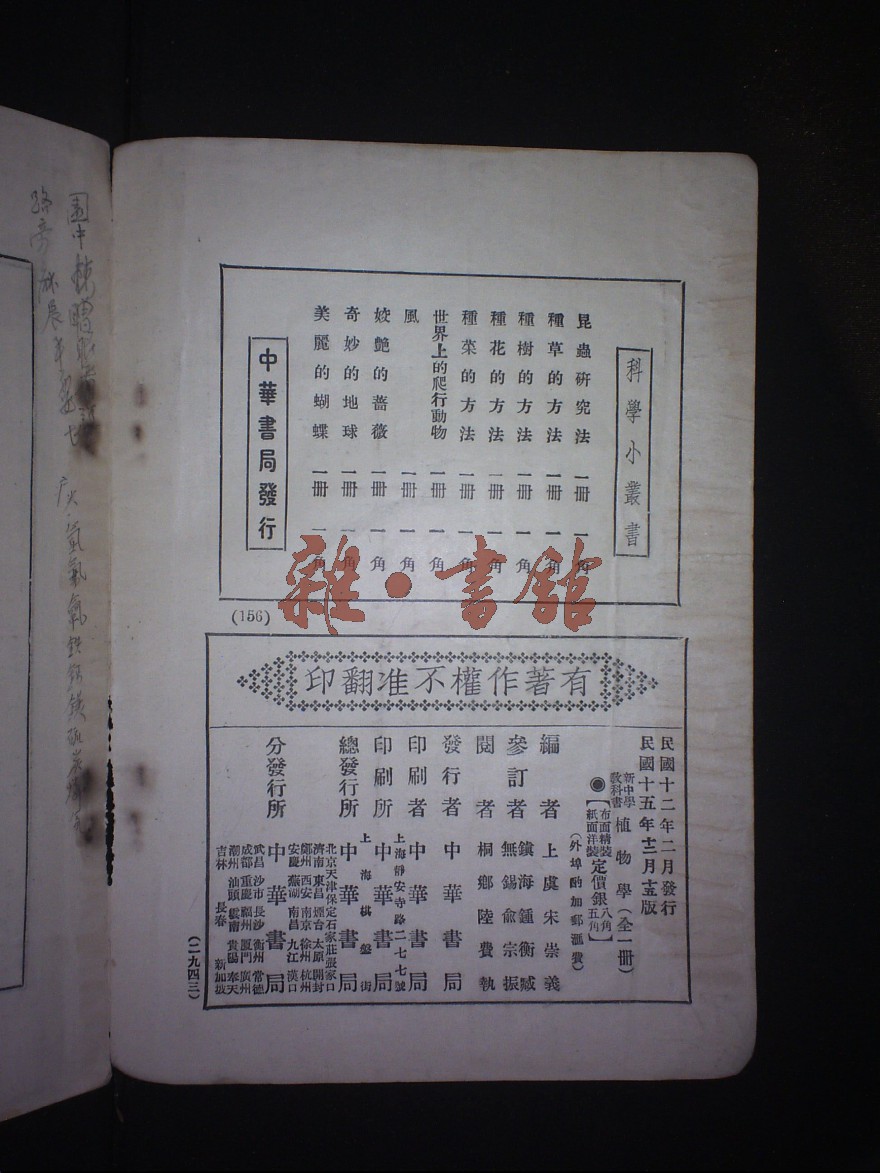 科學小叢書
昆蟲研究法 一冊 一角
種草的方法 一冊 一角
種樹的方法 一冊 一角
種花的方法 一冊 一角
種菜的方法 一冊 一角
世界上的爬行動物 一冊 一角
風 一冊 一角
姣艷的薔薇 一冊 一角
奇妙的地球 一冊 一角
美麗的蝴蝶 一冊 一角
中華書局發行
(156)
雜·書館
有著作權不准翻印
民國十二年二月發行
民國十五年十二月十五版
新中學教科書 植物學(全一冊)
◉【布面精裝 紙面洋裝 定價銀 八角 五角】
(外埠酌加郵滙費)
編者 上虞宋崇義
參訂者 鎮海鍾衡臧 無錫俞宗振
閱者 桐鄉陸費執
發行者 中華書局
印刷者 中華書局
印刷所 上海靜安寺路二七七號 中華書局
總發行所 上海棋盤街 中華書局
分發行所 中華書局
北京 天津 保定 石家莊 張家口
濟南 東昌 煙台 太原 開封
鄭州 西安 南京 徐州 杭州
安慶 蕪湖 南昌 九江 漢口
武昌 沙市 長沙 衡州 常德
成都 重慶 福州 廈門 廣州
潮州 汕頭 雲南 貴陽 奉天
吉林 長春 新加坡
(二九四三)